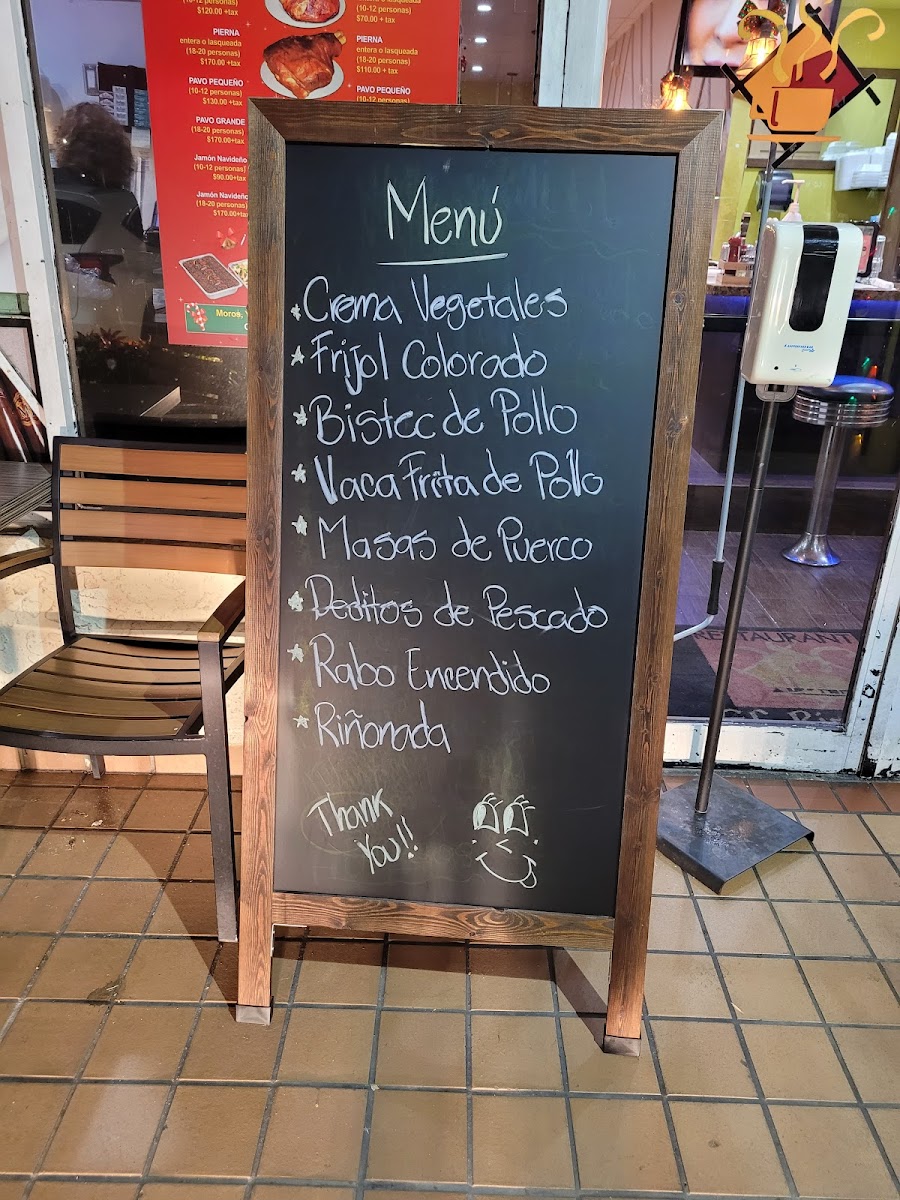 (10-12 personas)
$120.00 +tax
PIERNA
entera o lasqueada
(18-20 personas)
$170.00 +tax
PAVO PEQUEÑO
(10-12 personas)
$130.00 +tax
PAVO GRANDE
(18-20 personas)
$170.00+tax
Jamón Navideño
(10-12 personas)
$90.00+tax
Jamón Navideño
(18-20 personas)
$170.00+tax
Moros,
(10-12 personas)
$70.00 + tax
PIERNA
entera o lasqueada
(18-20 personas)
$110.00 + tax
PAVO PEQUEÑO
(10-12 personas)
Menú
Crema Vegetales
Frijol Colorado
Bistec de Pollo
Vaca Frita de Pollo
Masas de Puerco
Deditos de Pescado
Rabo Encendido
Riñonada
Thank
You!!
RESTAURANT